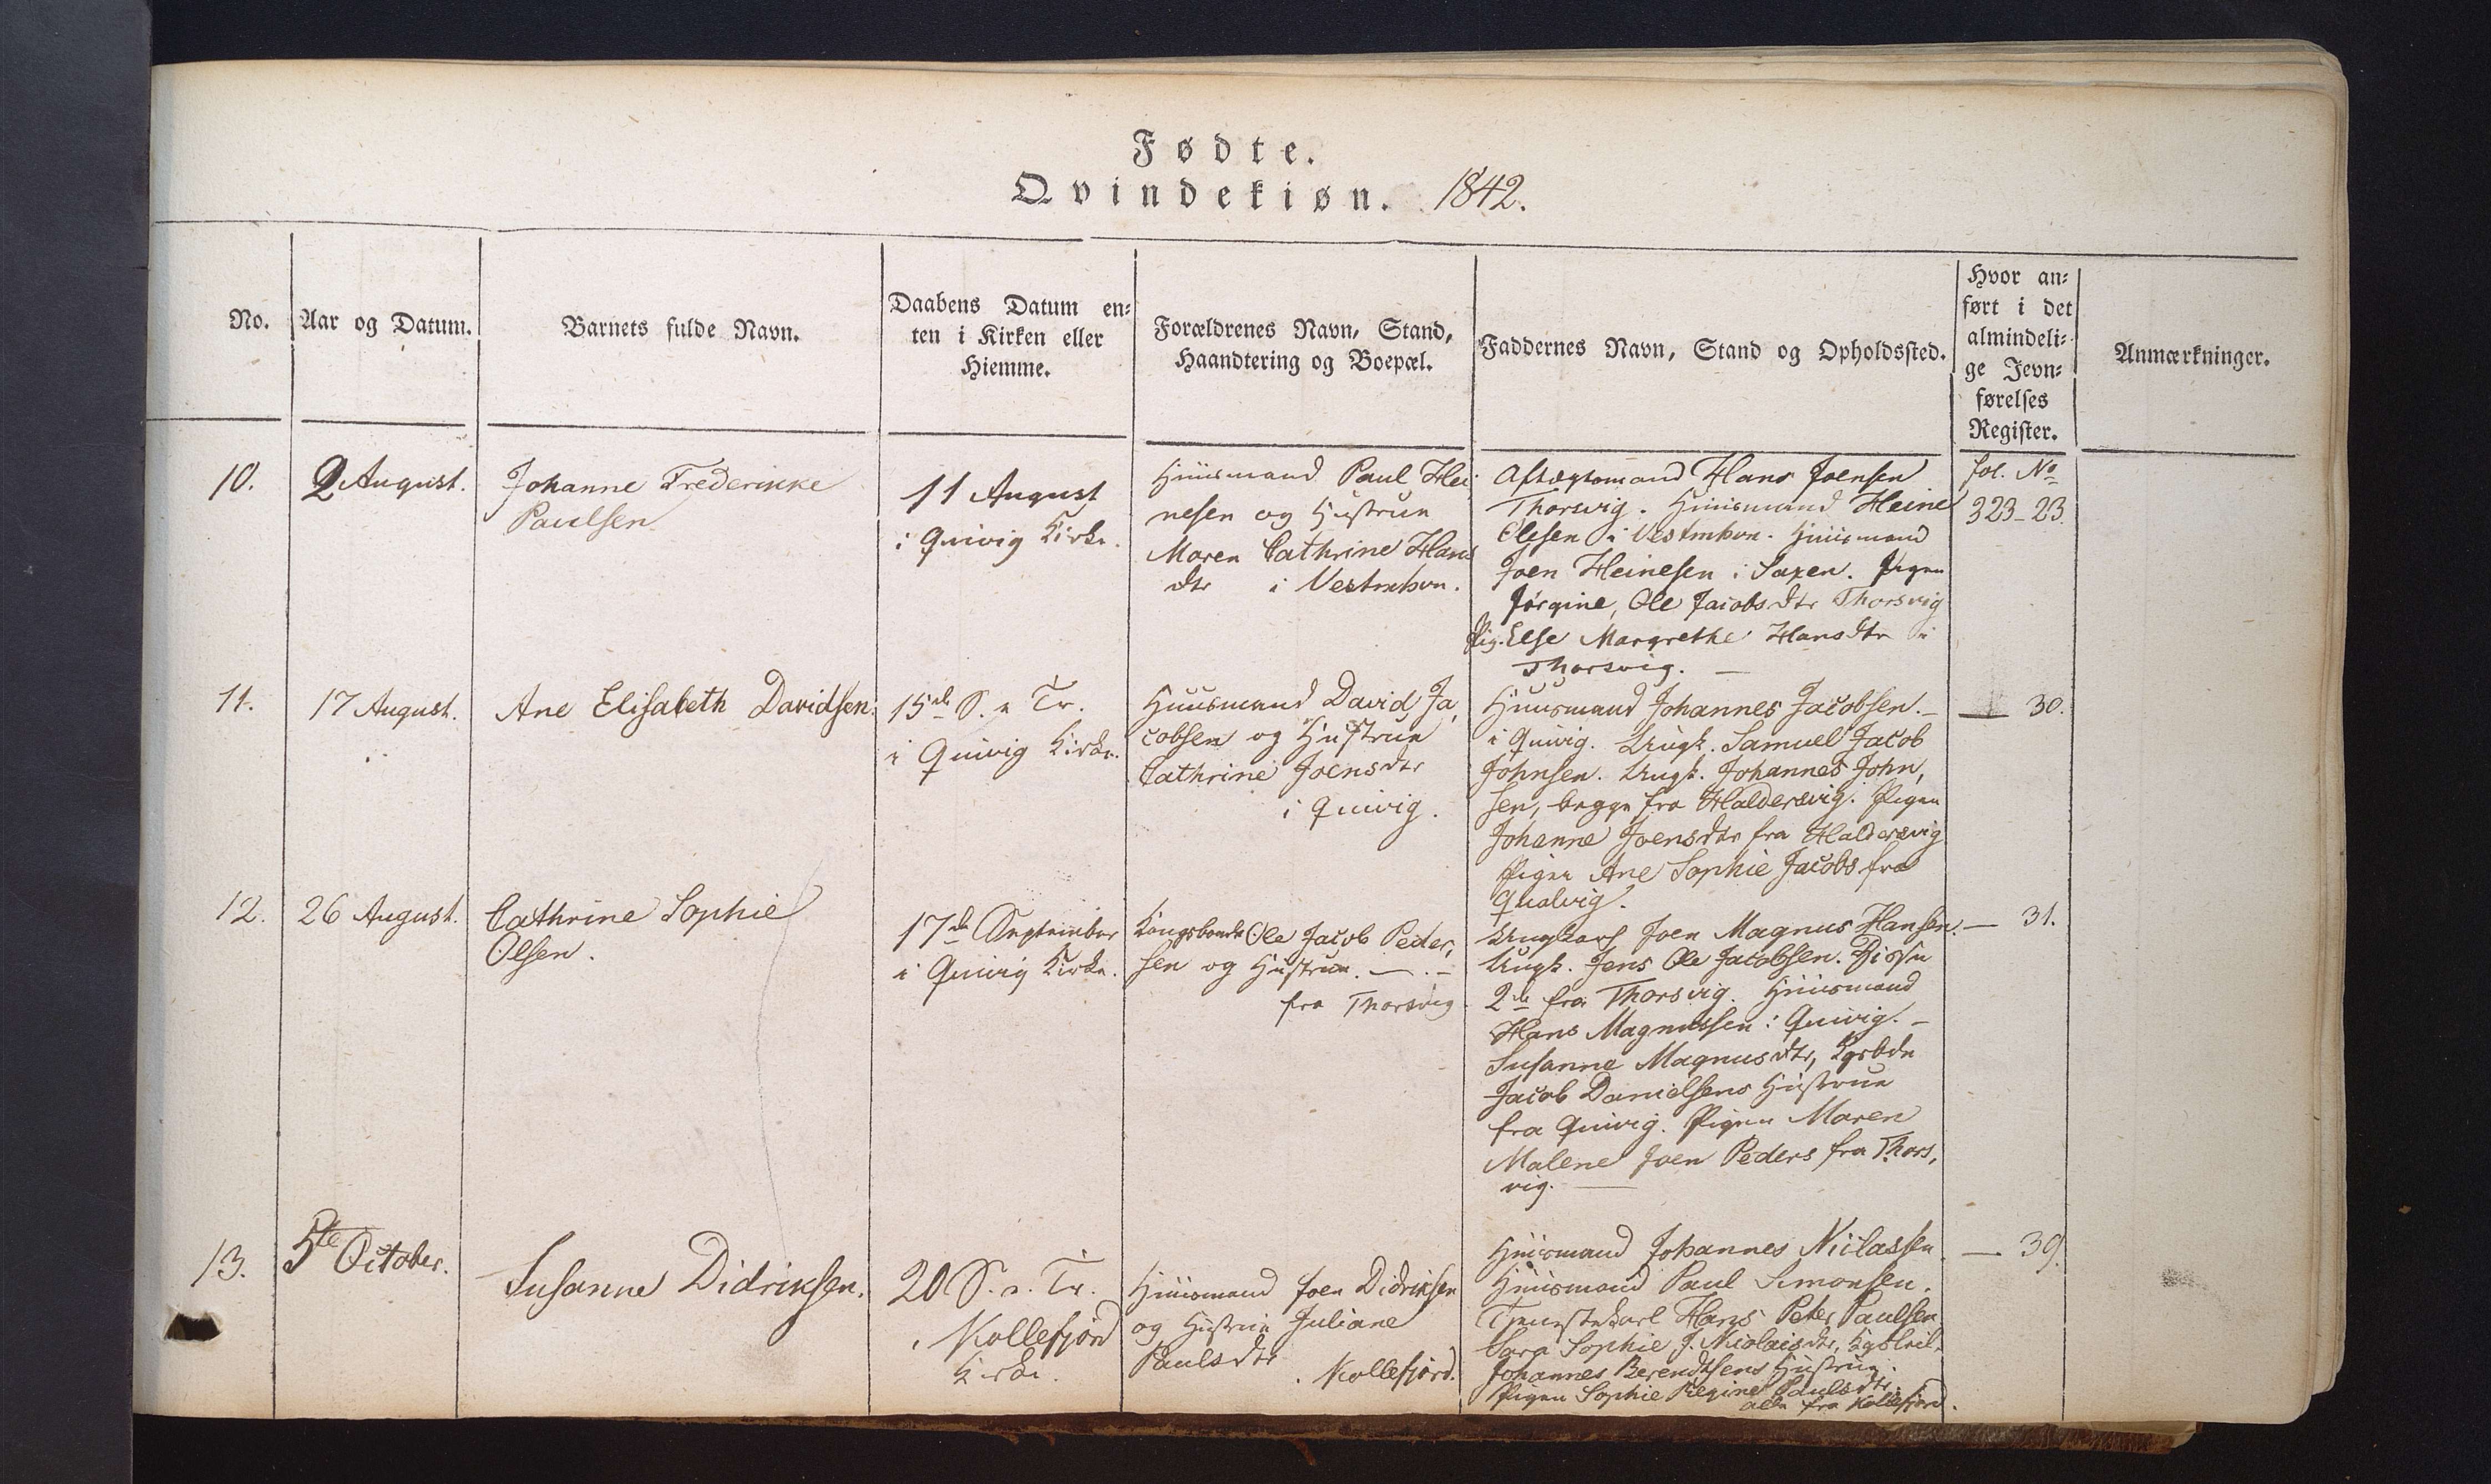 Fødte.
Qvindekiøn. 1842.
No.
Aar og Datum.
Barnets fulde Navn.
Daabens Datum en-
ten i Kirken eller
Hiemme.
Forældrenes Navn, Stand,
Haandtering og Boepæl.
Faddernes Navn, Stand og Opholdssted.
Hvor an-
ført i det
almindeli-
ge Jevn-
førelses
Register.
Anmærkninger.
10.
2 August.
Johanne Frederikke
Paulsen
11 August
i Qvivig Kirke.
Huusmand Paul Hei
nesen og Hustrue
Maren Cathrine Hans
dtr i Vestmhvn.
Aftægtsmand Hans Joensen
Thorsvig. Huusmand Heine
Olesen i Vestmhvn. Huusmand
Joen Heinesen i Saxen. Pigen
Jørgine, Ole Jacobsdtr Thorsvig
Pig. Else Margrethe Hansdtr i
Thorsvig. —
fol. No
323-23.
11.
17 August.
Ane Elisabeth Davidsen.
15de S. e Tr.
i Qvivig Kirke.
Huusmand David Ja,
cobsen og Hustrue
Cathrine Joensdtr
i Qvivig.
Huusmand Johannes Jacobsen. —
i Qvivig. Ungk. Samuel Jacob
Johnsen. Ungk. Johannes John,
sen, begge fra Haldersvig. Pigen
Johanne Joensdtr fra Haldersvig
Pigen Ane Sophie Jacobs fra
Qvalvig.
— 30.
12.
26 August.
Cathrine Sophie
Olsen.
17de September
i Qvivig Kirke.
Kongsbonde Ole Jacob Peder,
sen og Hustrue. — . —
fra Thorsvig
Ungkarl Joen Magnus Hansen.
Ungk. Jens Ole Jacobsen. Disse
2de fra Thorsvig. Huusmand
Hans Magnussen i Qvivig. —
Susanne Magnusdtr, Kgsbde
Jacob Danielsens Hustrue
fra Qvivig. Pigen Maren
Malene Joen Peders fra Thors,
vig. —
— 31.
13.
5te October.
Susanne Didriksen.
20 S. e. Tr.
i Kollefjord
Kirke.
Huusmand Joen Didriksen
og Hustrue Juliane
Paulsdtr
i Kollefjord.
Huusmand Johannes Niclassen
Huusmand Paul Simonsen.
Tjenestekarl Hans Peter Paulsen
Sara Sophie J. Nicolaisdtr,
Johannes Berendtsens Hustrue.
Pigen Sophie Regine Paulsdtr.
alle fra Kollefjord.
— 39.